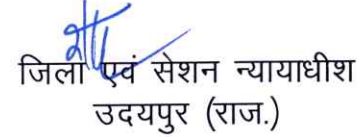 जिला एवं सेशन न्यायाधीश
उदयपुर (राज.)